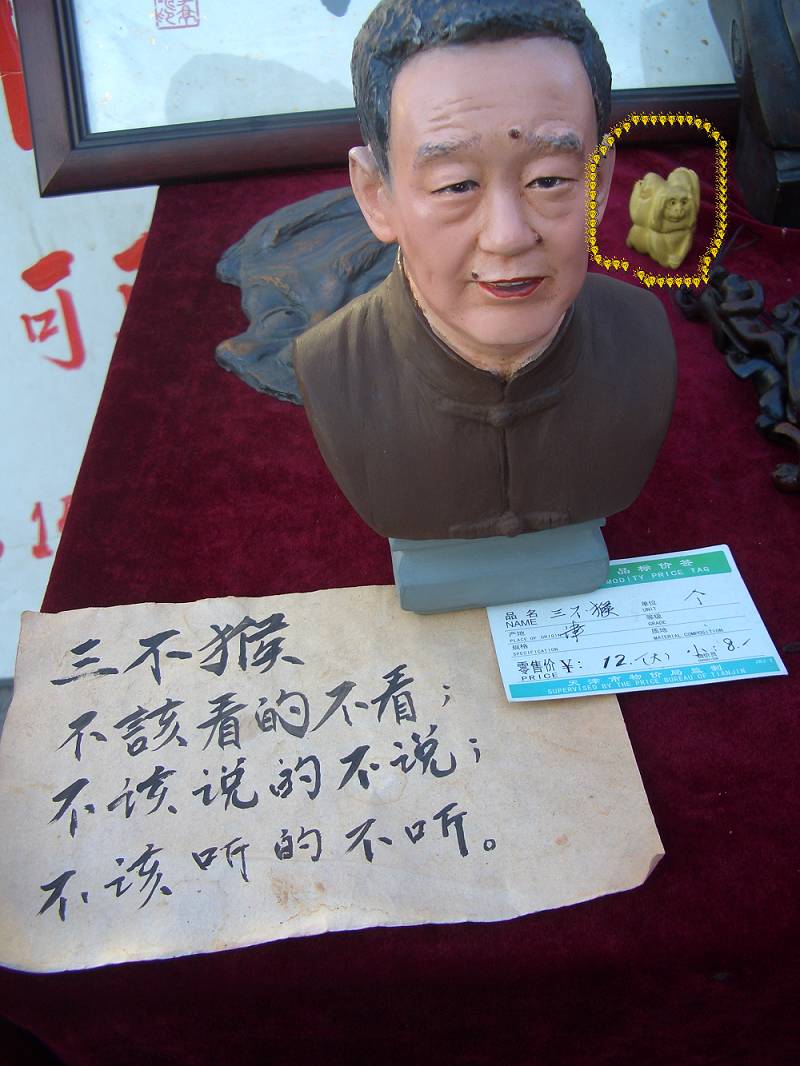 可
三不猴
不該看的不看；
不该说的不说；
不该听的不听。
品标价签
MODITY PRICE TAG
品名 三不猴 单位 个
NAME UNIT
产地 津 等级
PLACE OF ORIGIN GRADE
规格 质地
SPECIFICATION MATERIAL COMPOSITION
零售价¥: 12.(大) 小: 8.-
PRICE
天津市物价局监制
SUPERVISED BY THE PRICE BUREAU OF TIANJIN